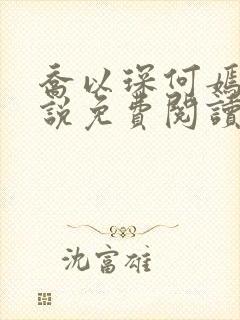 喬以琛何嫣
說免費閱讀
沈富雄